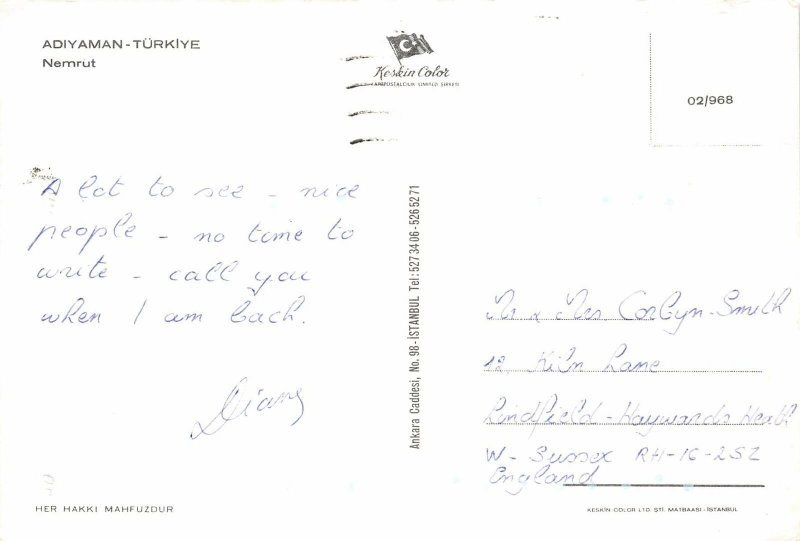 ADIYAMAN-TÜRKİYE
Nemrut
Keskin Color
KARTPOSTALCILIK LİMİTED ŞİRKETİ
02/968
A lot to see - nice
people - no time to
write - call you
when I am back.
Diane
Ankara Caddesi, No. 98-İSTANBUL Tel: 5273406-5265271
Mr & Mrs Corbyn-Smith
12 Kiln Lane
Lindfield - Haywards Heath
W- Sussex RH-16-2SZ
England
HER HAKKI MAHFUZDUR
KESKİN COLOR LTD. ŞTİ. MATBAASI-İSTANBUL